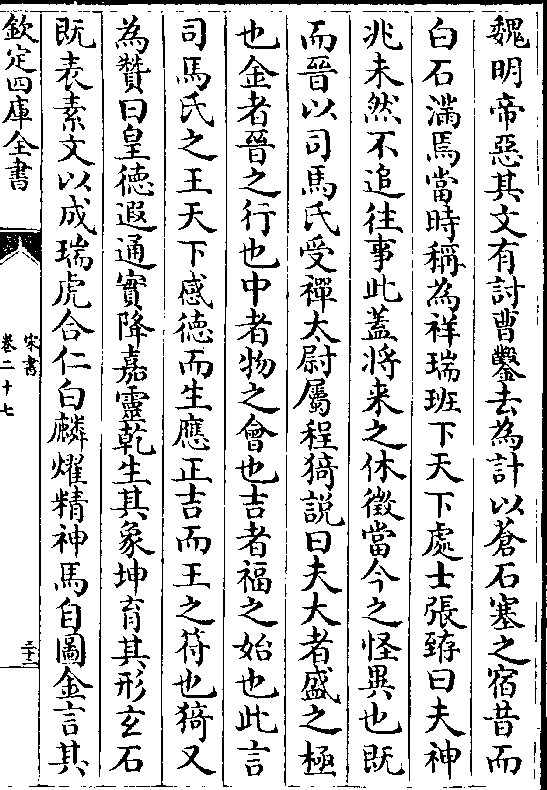 魏明帝惡其文有討曹鑿去為計以蒼石塞之宿昔而
白石滿焉當時稱為祥瑞班下天下處士張臶曰夫神
兆未然不追往事此蓋將来之休徵當今之怪異也既
而晉以司馬氏受禪太尉屬程猗説曰夫大者盛之極
也金者晉之行也中者物之會也吉者福之始也此言
司馬氏之王天下感德而生應正吉而王之符也猗又
為贊曰皇德遐通實降嘉靈乾生其象坤育其形玄石
既表素文以成瑞虎合仁白麟燿精神馬自圖金言其
欽定四庫全書
宋書
卷二十七